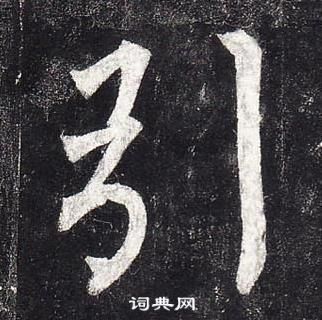 引
词典网